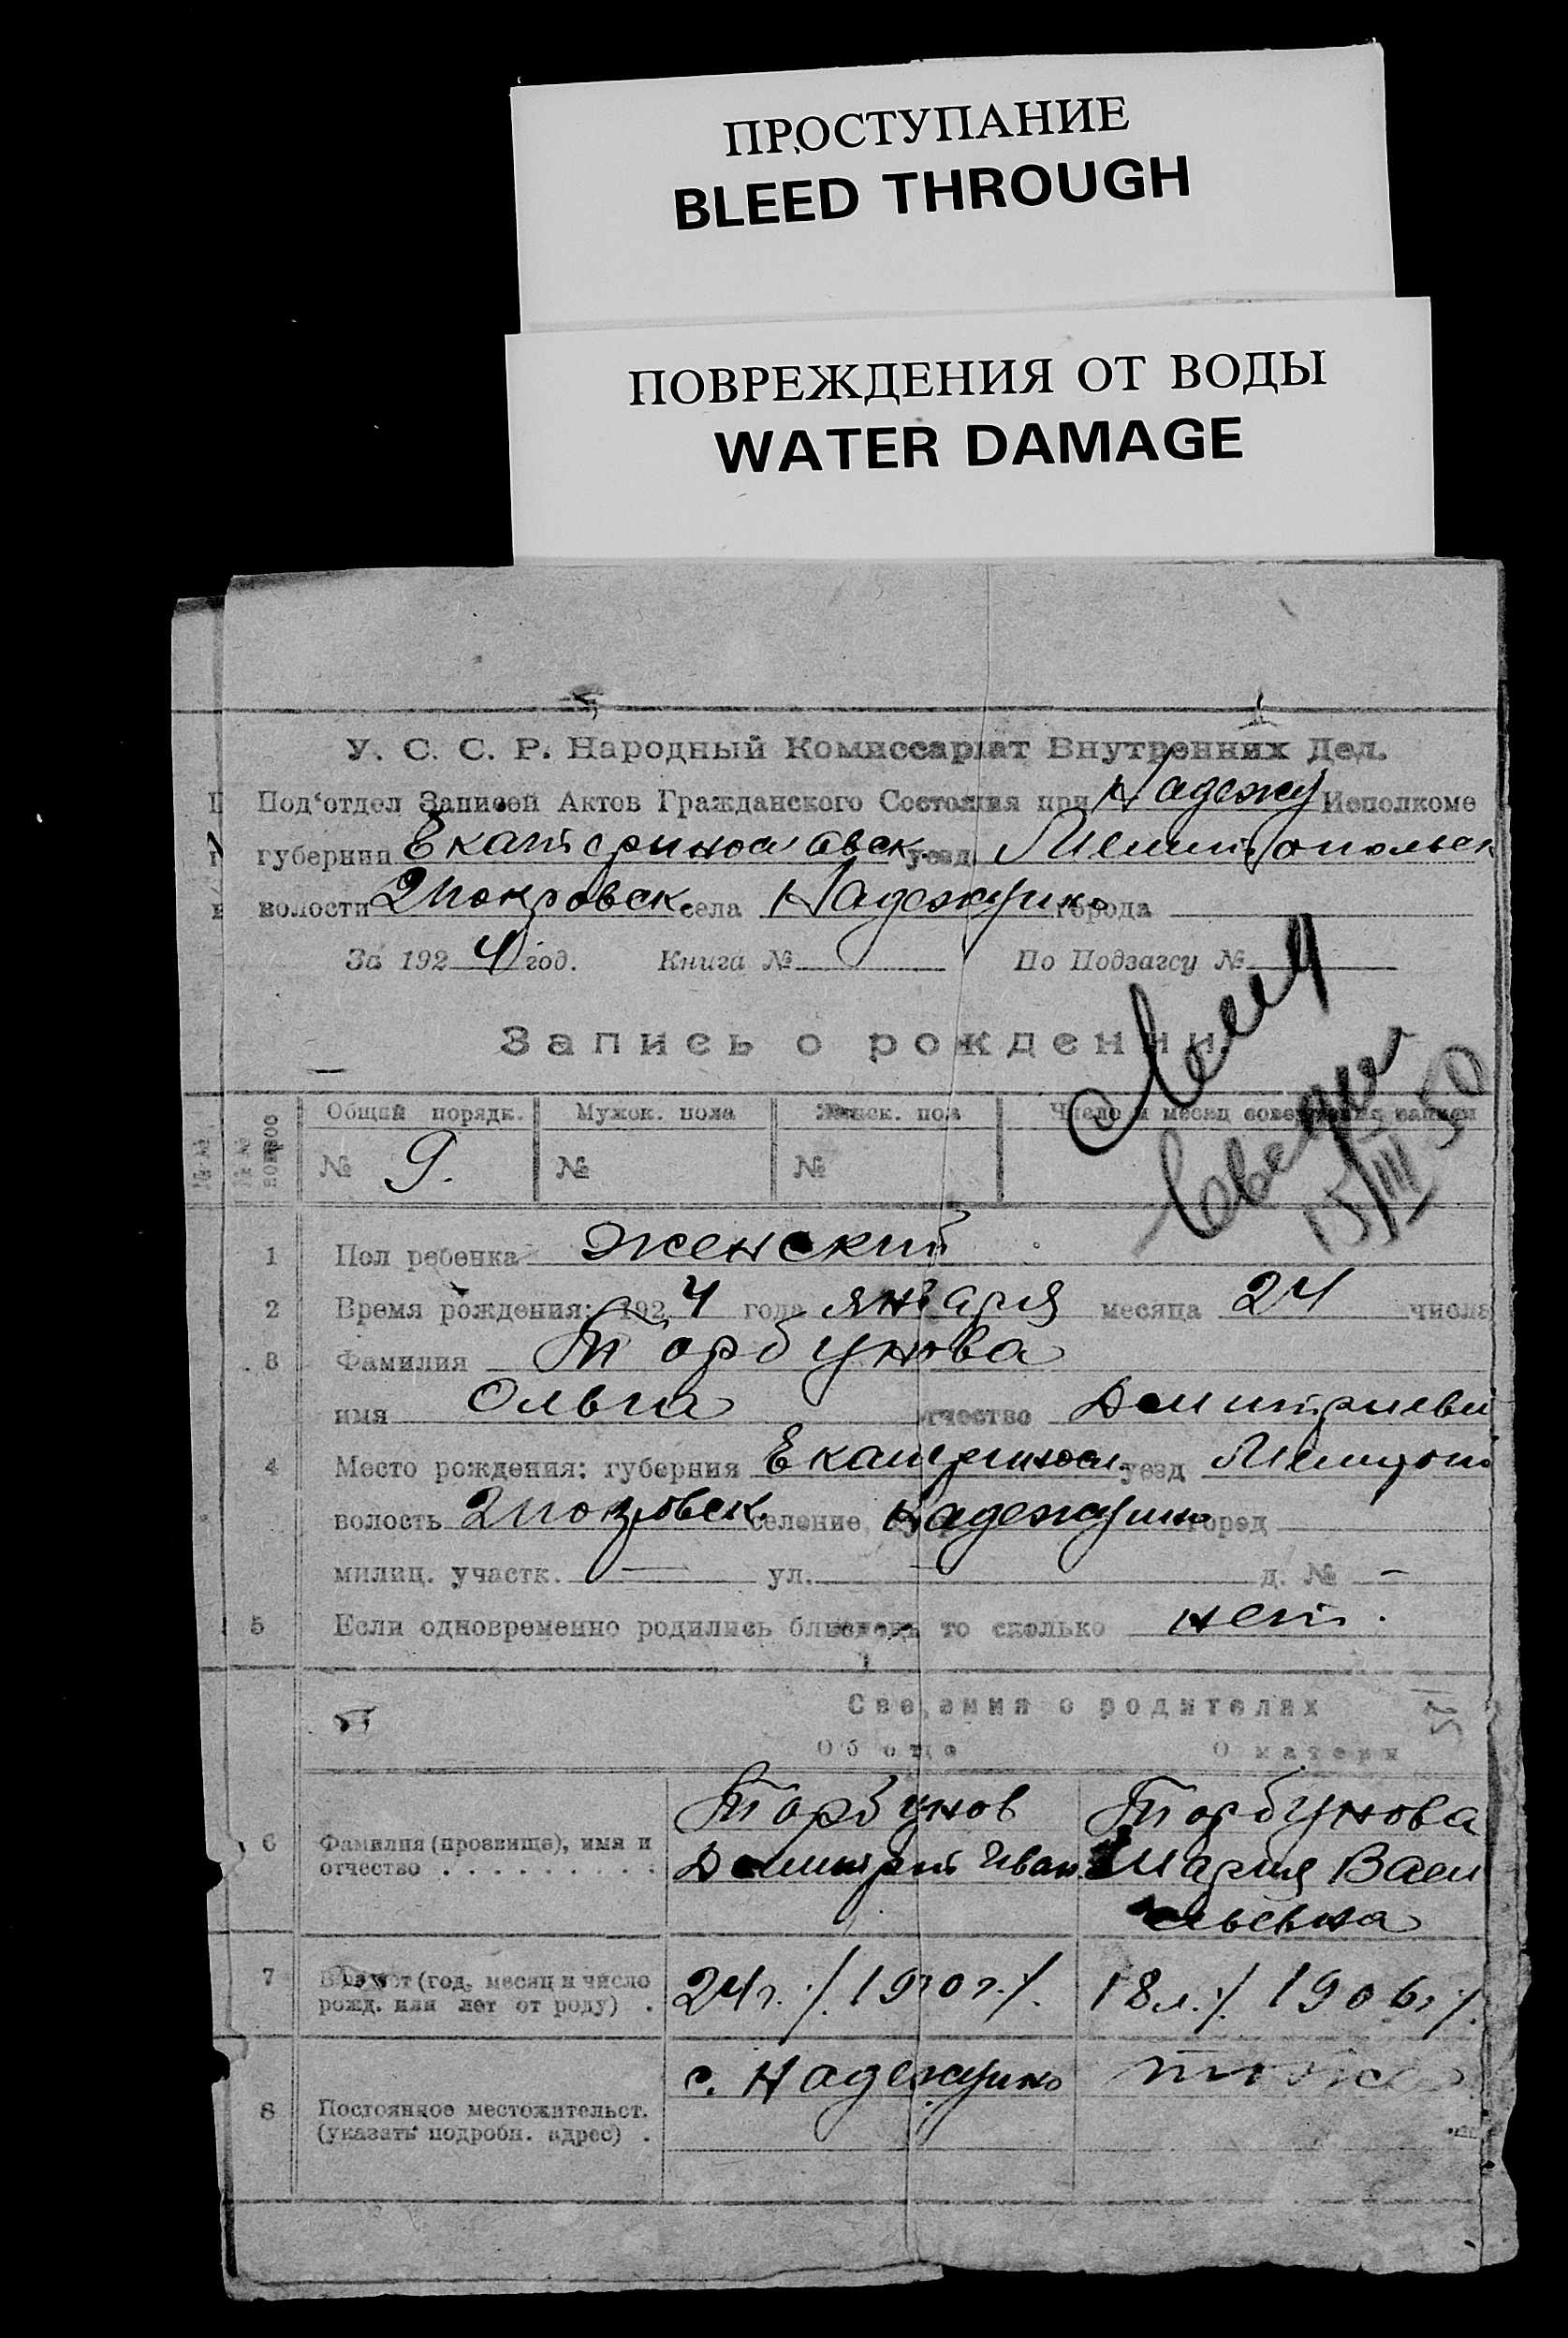 ПРОСТУПАНИЕ
BLEED THROUGH
ПОВРЕЖДЕНИЯ ОТ ВОДЫ
WATER DAMAGE
У. С. С. Р. Народный Комиссариат Внутренних Дел.
Под'отдел Записей Актов Гражданского Состояния при Надежд Исполкоме
губернии Екатеринославск. уезд. Мелитопольск
волости 2 Покровск. села Надеждино города
За 1924 год. Книга № По Подзагсу №
Запись о рождении.
№№ вопрос Общий порядк. Мужск. пола Женск. пол Число и месяц совершения записи
№ 9. № №
15/III 50
1 Пол ребенка женский
2 Время рождения: 1924 года января месяца 24 числа
3 Фамилия Торбунова
имя Ольга отчество Дмитриевн
4 Место рождения: губерния Екатериносл. уезд Мелитоп
волость 2 Покровск. селение, Надеждино город
милиц. участк. — ул. — д. № —
5 Если одновременно родились близнецы то сколько нет.
Сведения о родителях
Об отце О матери
6 Фамилия (прозвище), имя и отчество . . . . . . . . . Торбунов Торбунова
Дмитрий Иван. Мария Васи
льевна
7 Возраст (год, месяц и число рожд. или лет от роду) . 24 г. /. 1900 г. /. 18 л. /. 1906 г. /.
8 Постоянное местожительст. (указать подробн. адрес) . с. Надеждино тоже